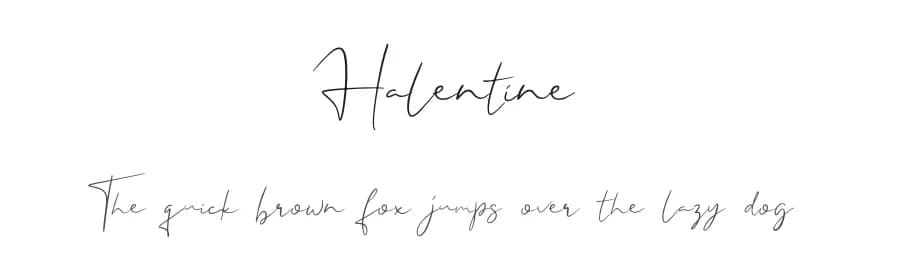 Halentine
The quick brown fox jumps over the lazy dog